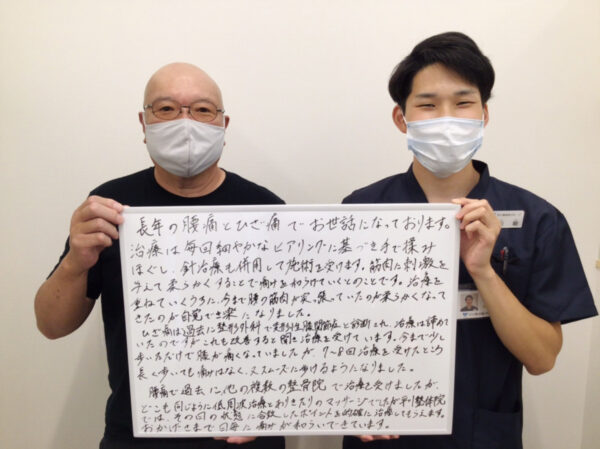 長年の腰痛とひざ痛でお世話になっております。
治療は毎回細やかなヒアリングに基づき手で揉み
ほぐし、針治療も併用して施術を受けます。筋肉に刺激を
与えて柔らかくすることで痛みを和らげていくとのことです。治療を
重ねていくうちに、今まで腰の筋肉が突っ張っていたのが柔らかくなって
きたのが自覚でき楽になりました。
ひざ痛は過去に整形外科で変形性膝関節症と診断され、治療は諦めて
いたのですがこれも改善すると聞き治療を受けています。今まで少し
歩いただけで膝が痛くなっていましたが、7〜8回治療を受けたところ
長く歩いても痛みはなく、スムーズに歩けるようになりました。
腰痛で過去に他の複数の整骨院で治療を受けましたが、
どこも同じように低周波治療とおきまりのマッサージでしたが平川整体院
では、その日の状態に合致したポイントを的確に治療してもらえます。
おかげさまで日毎に痛みが和らいできています。